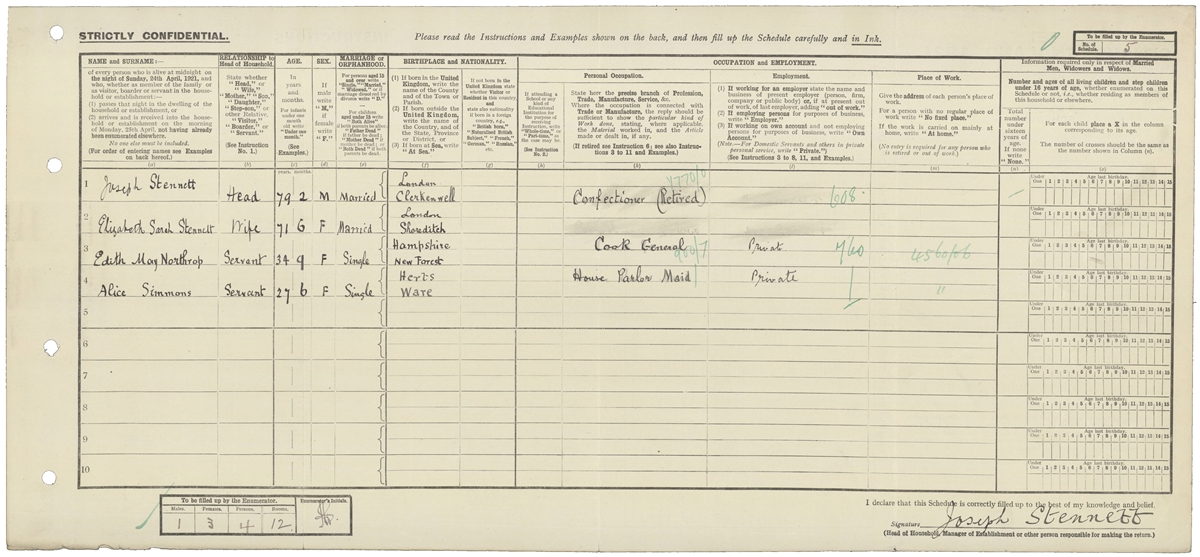 STRICTLY CONFIDENTIAL.
Please read the Instructions and Examples shown on the back, and then fill up the Schedule carefully and in Ink.
To be filled up by the Enumerator.
No. of Schedule. 5
NAME and SURNAME:—
of every person who is alive at midnight on
the night of Sunday, 24th April, 1921, and
who, whether as member of the family or
as visitor, boarder or servant in the house-
hold or establishment:—
(1) passes that night in the dwelling of the
household or establishment, or
(2) arrives and is received into the house-
hold or establishment on the morning
of Monday, 25th April, not having already
been enumerated elsewhere.
No one else must be included.
(For order of entering names see Examples
on back hereof.)
(a)
RELATIONSHIP to
Head of Household.
State whether
"Head," or
"Wife,"
"Mother," "Son,"
"Daughter,"
"Step-son," or
other Relative,
"Visitor,"
"Boarder," or
"Servant."
(See Instruction
No. 1.)
(b)
AGE.
In
years
and
months.
(See
Examples.)
(c)
SEX.
If
male
write
"M."
If
female
write
"F."
(d)
MARRIAGE or
ORPHANHOOD.
(e)
BIRTHPLACE and NATIONALITY.
(1) If born in the United
Kingdom, write the
name of the County
and of the Town or
Parish.
(2) If born outside the
United Kingdom,
write the name of
the Country, and of
the State, Province
or District, or
(3) If born at Sea, write
"At Sea."
(f)
(g)
(h)
OCCUPATION and EMPLOYMENT.
Personal Occupation.
State here the precise branch of Profession,
Trade, Manufacture, Service, &c.
Where the occupation is connected with
Trade or Manufacture, the reply should be
sufficient to show the particular kind of
Work done, stating, where applicable,
the Material worked in, and the Article
made or dealt in, if any.
(If retired see Instruction 6; see also Instruc-
tions 3 to 11 and Examples.)
(k)
Employment.
(1) If working for an employer state the name and
business of present employer (person, firm,
company or public body) or, if at present out
of work, of last employer, adding "out of work."
(2) If employing persons for purposes of business,
write "Employer."
(3) If working on own account and not employing
persons for purposes of business, write "Own
Account."
(Note.—For Domestic Servants and others in private
personal service, write "Private.")
(See Instructions 3 to 8, 11, and Examples.)
(l)
Place of Work.
Give the address of each person's place of
work.
For a person with no regular place of
work write "No fixed place."
If the work is carried on mainly at
home, write "At home."
(No entry is required for any person who
is retired or out of work.)
(m)
Information required only in respect of Married
Men, Widowers and Widows.
Number and ages of all living children and step children
under 16 years of age, whether enumerated on this
Schedule or not, i.e., whether residing as members of
this household or elsewhere.
Total
number
under
sixteen
years of
age.
If none
write
"None."
For each child place a X in the column
corresponding to its age.
The number of crosses should be the same as
the number shown in Column (n).
(n)
(o)
1 Joseph Stennett Head 79 2 M Married London Clerkenwell Confectioner (Retired) 608
2 Elizabeth Sarah Stennett Wife 71 6 F Married London Shoreditch
3 Edith May Northrop Servant 34 9 F Single Hampshire New Forest Cook General Privat
4 Alice Simmons Servant 27 6 F Single Herts Ware House Parlor Maid Private "
5
6
7
8
9
10
To be filled up by the Enumerator.
Males. Females. Persons. Rooms.
1 3 4 12
Enumerator's Initials.
I declare that this Schedule is correctly filled up to the best of my knowledge and belief.
Signature Joseph Stennett
(Head of Household, Manager of Establishment or other person responsible for making the return.)